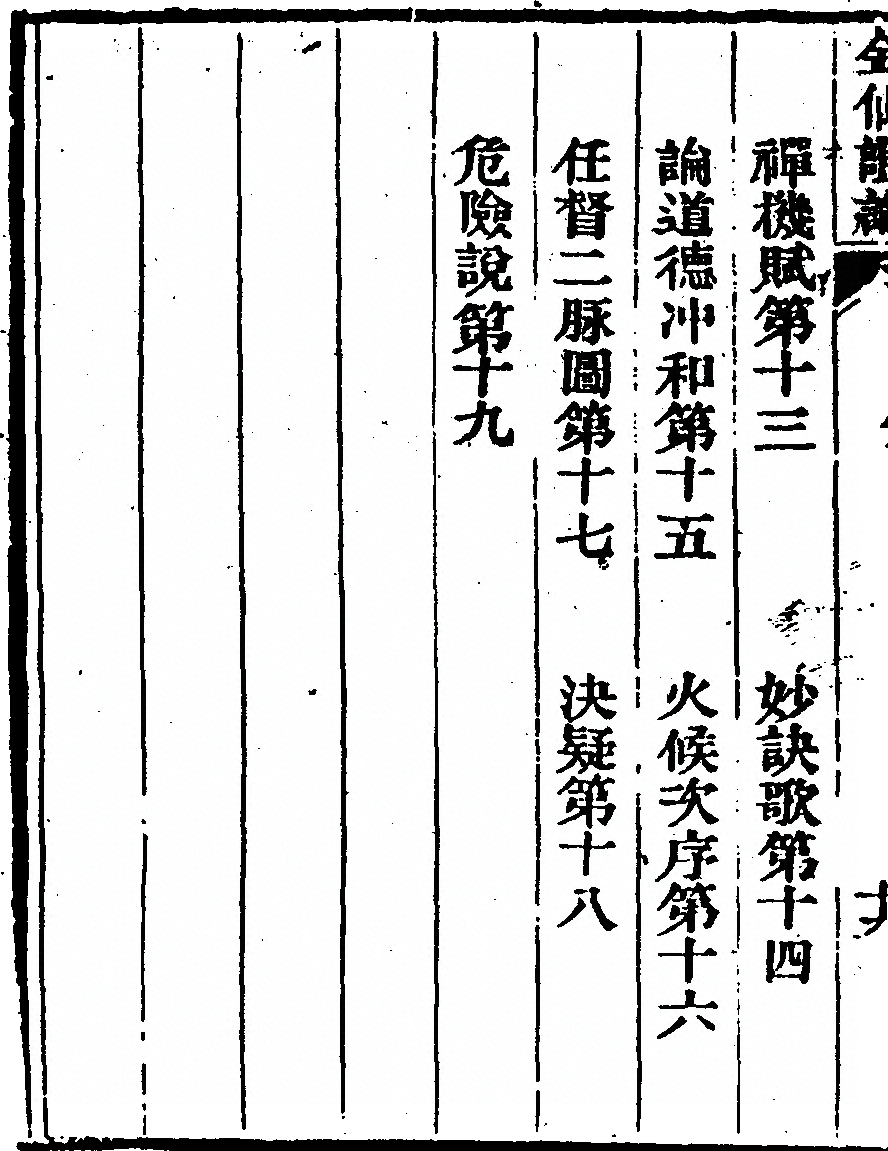 禪機賦第十三
妙訣歌第十四
論道德冲和第十五
火候次序第十六
任督二脉圖第十七
決疑第十八
危險說第十九